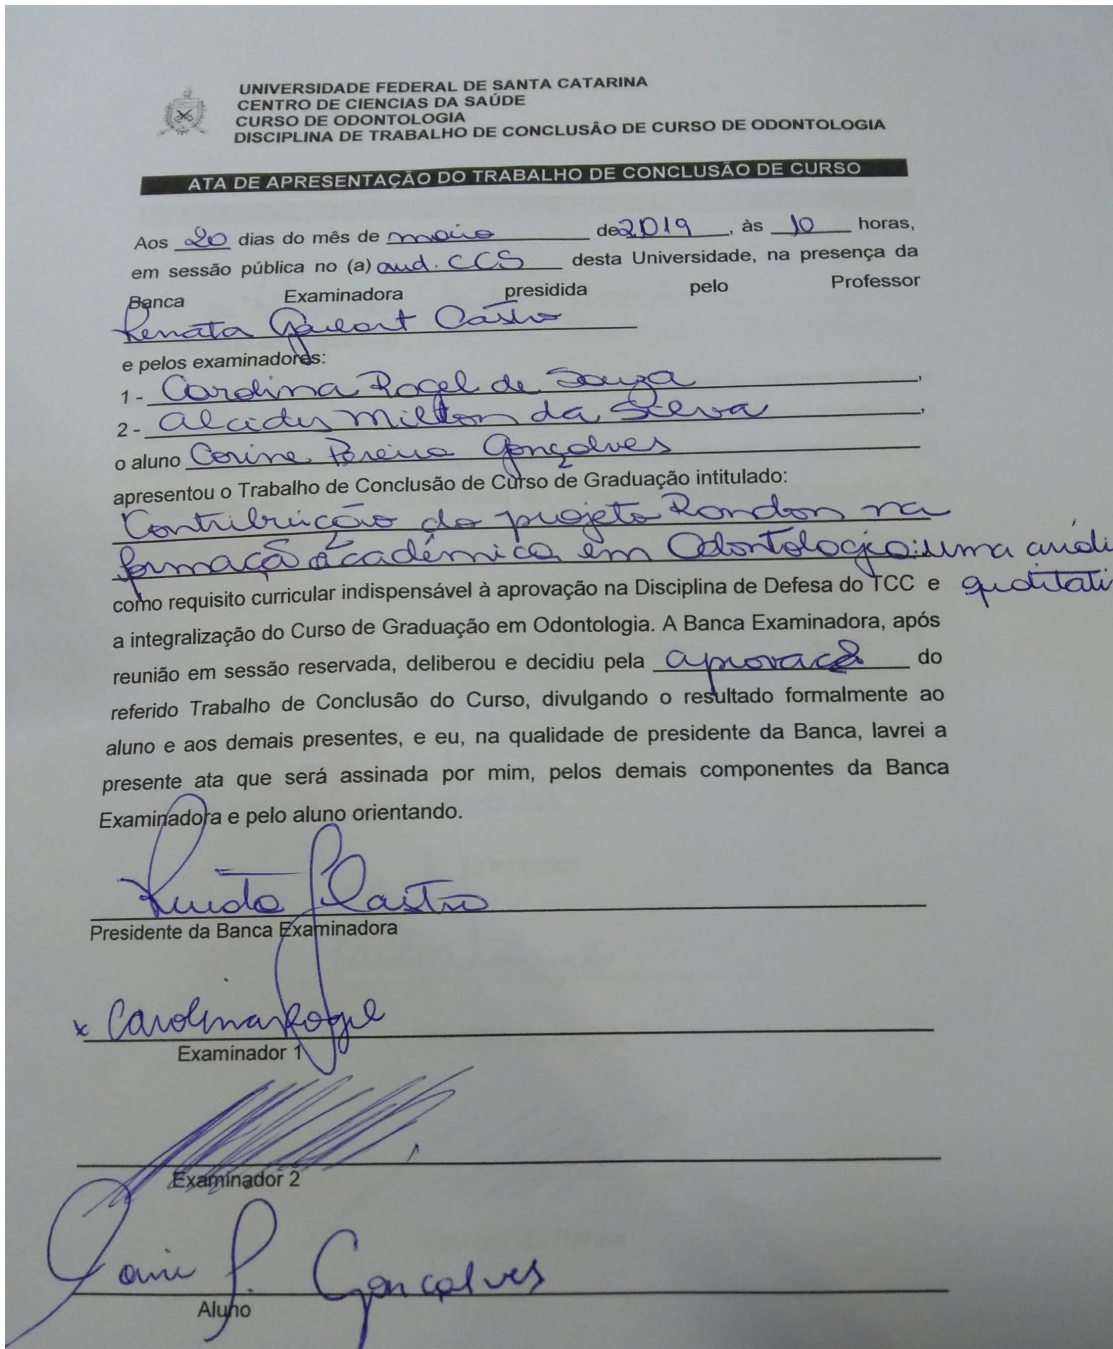 UNIVERSIDADE FEDERAL DE SANTA CATARINA
CENTRO DE CIENCIAS DA SAÚDE
CURSO DE ODONTOLOGIA
DISCIPLINA DE TRABALHO DE CONCLUSÃO DE CURSO DE ODONTOLOGIA
ATA DE APRESENTAÇÃO DO TRABALHO DE CONCLUSÃO DE CURSO
Aos 20 dias do mês de maio de 2019, às 10 horas,
em sessão pública no (a) aud. CCS desta Universidade, na presença da
Banca Examinadora presidida pelo Professor
Renata Goulart Castro
e pelos examinadores:
1 - Carolina Rogel de Souza,
2 - Alcides Milton da Silva,
o aluno Corine Pereira Gonçalves
apresentou o Trabalho de Conclusão de Curso de Graduação intitulado:
Contribuição do projeto Rondon na
formação acadêmica em Odontologia: uma
como requisito curricular indispensável à aprovação na Disciplina de Defesa do TCC e
a integralização do Curso de Graduação em Odontologia. A Banca Examinadora, após
reunião em sessão reservada, deliberou e decidiu pela aprovaçã do
referido Trabalho de Conclusão do Curso, divulgando o resultado formalmente ao
aluno e aos demais presentes, e eu, na qualidade de presidente da Banca, lavrei a
presente ata que será assinada por mim, pelos demais componentes da Banca
Examinadora e pelo aluno orientando.
Presidente da Banca Examinadora
x Carolina Rogel
Examinador 1
Examinador 2
Gonçalves
Aluno